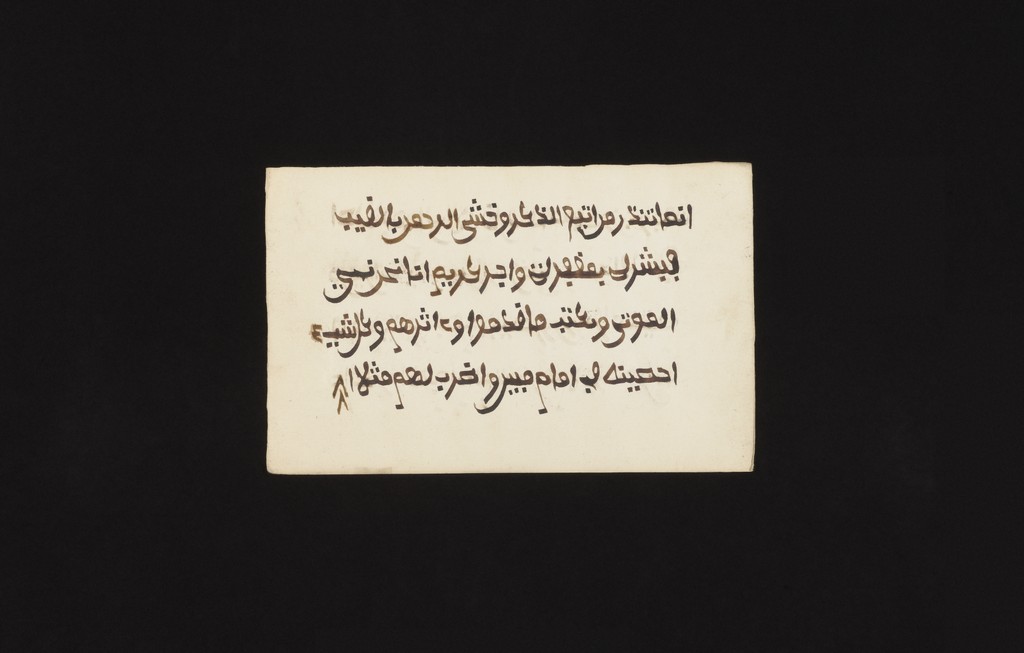 انما تنذر من اتبع الذكر وخشي الرحمن بالغيب
فبشره بمغفرة واجر كريم انا نحن نحي
الموتى ونكتب ما قدموا واثرهم وكل شيء
احصينه في امام مبين واضرب لهم مثلا ا